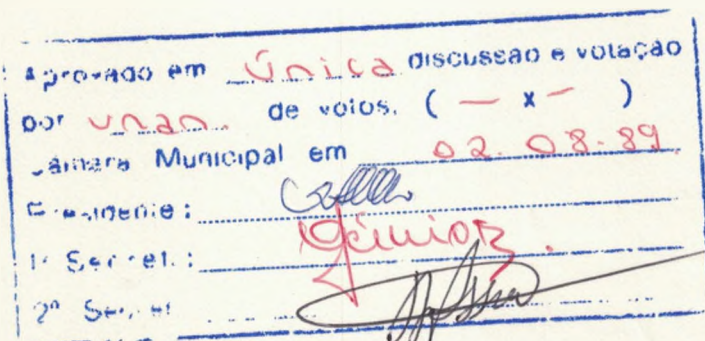 Aprovado em Única discussão e votação
por unan. de votos. ( — x — )
Câmara Municipal em 02.08.89.
Presidente:
1º Secret.: Júnior.
2º Secret